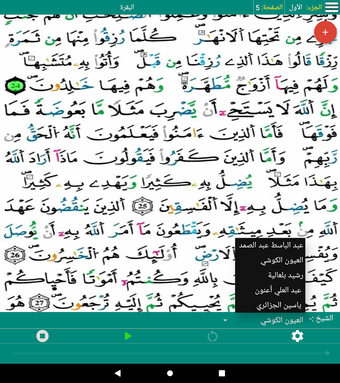 الجزء: الأول الصفحة: 5 البقرة
مِن تَحْتِهَا اَ۬لَانْهَٰرُ كُلَّمَا رُزِقُواْ مِنْهَا مِن ثَمَرَةٖ
رِّزْقاٗ قَالُواْ هَٰذَا اَ۬لذِے رُزِقْنَا مِن قَبْلُ وَأُتُواْ بِهِۦ مُتَشَٰبِهاٗ
وَلَهُمْ فِيهَا أَزْوَٰجٞ مُّطَهَّرَةٞ وَهُمْ فِيهَا خَٰلِدُونَ 24
إِنَّ اَ۬للَّهَ لَا يَسْتَحْيِۦ أَنْ يَّضْرِبَ مَثَلاٗ مَّا بَعُوضَةٗ فَمَا
فَوْقَهَا فَأَمَّا اَ۬لذِينَ ءَامَنُواْ فَيَعْلَمُونَ أَنَّهُ اُ۬لْحَقُّ مِن
رَّبِّهِمْ وَأَمَّا اَ۬لذِينَ كَفَرُواْ فَيَقُولُونَ مَاذَا أَرَادَ اَ۬للَّهُ
بِهَٰذَا مَثَلاٗ يُضِلُّ بِهِۦ كَثِيراٗ وَيَهْدِے بِهِۦ كَثِيراٗ
وَمَا يُضِلُّ بِهِۦ إِلَّا اَ۬لْفَٰسِقِينَ 25 اَ۬لذِينَ يَنقُضُونَ عَهْدَ
اَ۬للَّهِ مِنۢ بَعْدِ مِيثَٰقِهِۦ وَيَقْطَعُونَ مَا أَمَرَ اَ۬للَّهُ بِهِۦ أَنْ يُّوصَلَ
أُوْلَٰٓئِكَ هُمُ اُ۬لْخَٰسِرُونَ 26
كَيْفَ تَكْفُرُونَ بِاللَّهِ وَكُنتُمْ أَمْوَٰتاٗ فَأَحْيَٰكُمْ
ثُمَّ يُمِيتُكُمْ ثُمَّ يُحْيِيكُمْ ثُمَّ إِلَيْهِ تُرْجَعُونَ 27 هُوَ
عبد الباسط عبد الصمد
العيون الكوشي
رشيد بلعالية
عبد العلي أعنون
ياسين الجزائري
الشيخ :- العيون الكوشي